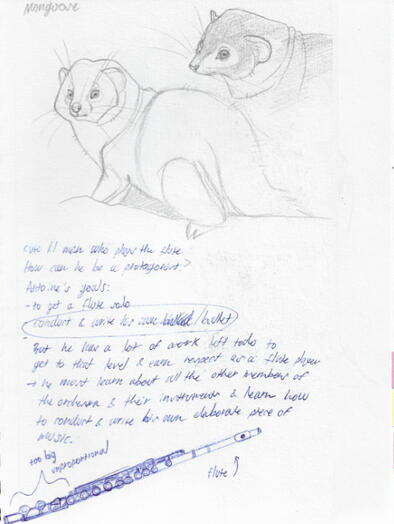 Mongoose
cute lil man who plays the flute
How can he be a protagonist?
Antoine's goals:
- to get a flute solo
conduct & write his own ballet
- But he has a lot of work left todo to
get to that level & earn respect as a flute player
→ he must learn about all the other members of
the orchestra & their instruments & learn how
to conduct & write his own elaborate piece of
music.
too big
unproportional
flute